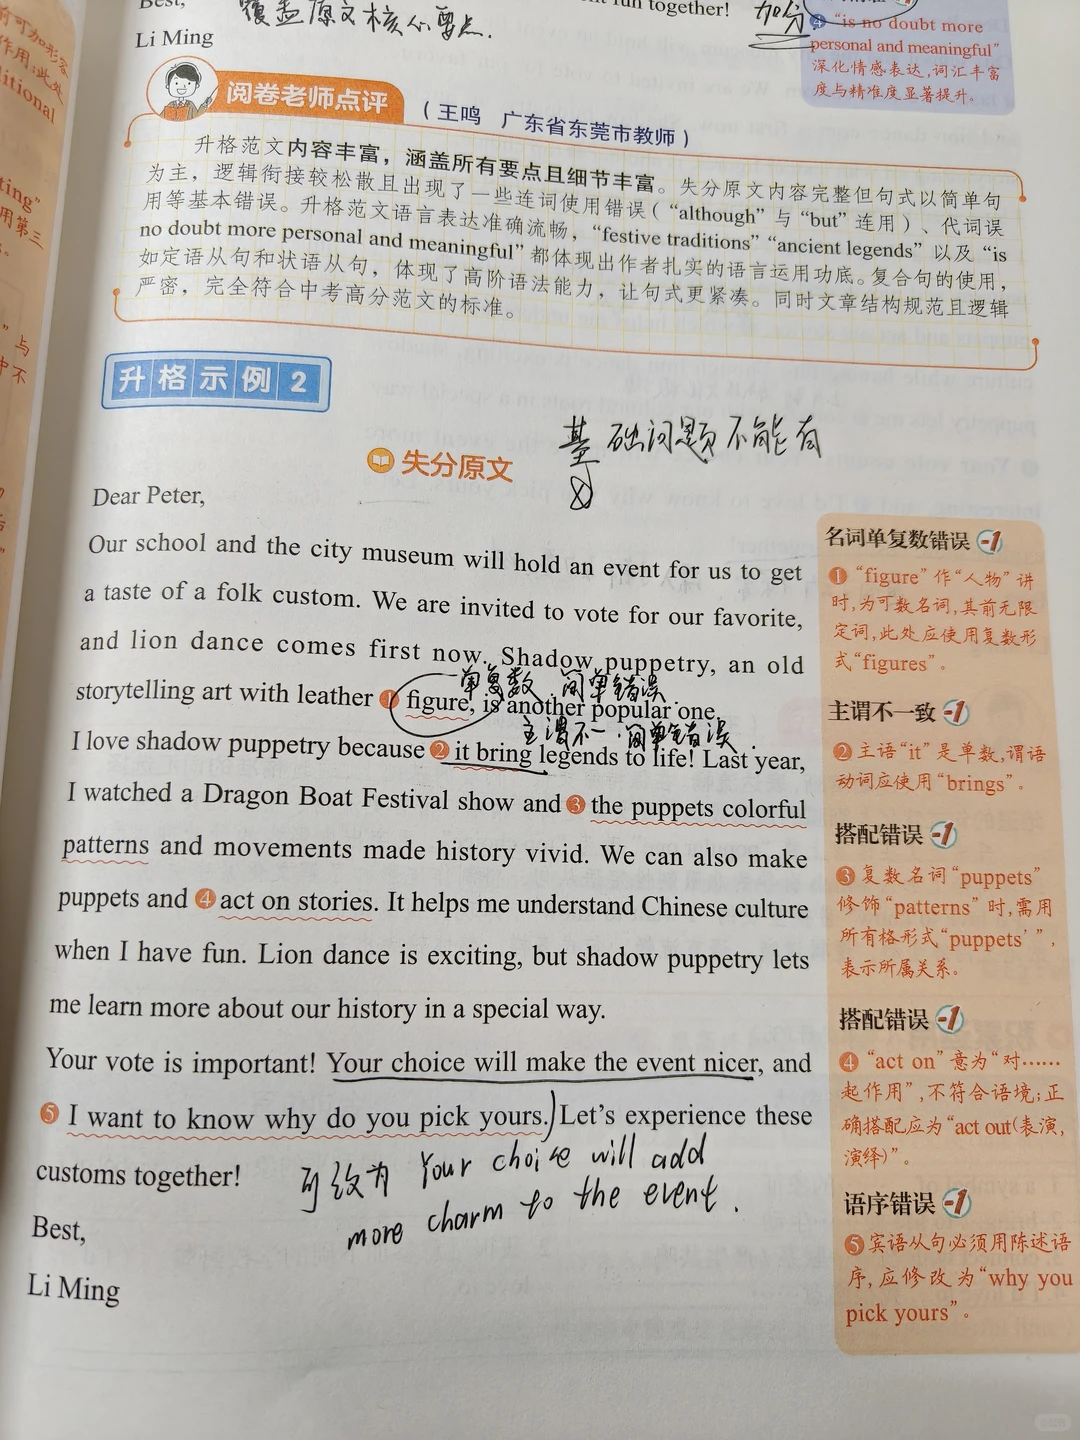 Best,
覆盖原文核心要点.
fun together!
加分.
Li Ming
④ “is no doubt more
personal and meaningful”
深化情感表达,词汇丰富
度与精准度显著提升。
阅卷老师点评
（王鸣 广东省东莞市教师）
升格范文内容丰富，涵盖所有要点且细节丰富。失分原文内容完整但句式以简单句
为主，逻辑衔接较松散且出现了一些连词使用错误（“although”与“but”连用）、代词误
用等基本错误。升格范文语言表达准确流畅，“festive traditions”“ancient legends”以及“is
no doubt more personal and meaningful”都体现出作者扎实的语言运用功底。复合句的使用，
如定语从句和状语从句，体现了高阶语法能力，让句式更紧凑。同时文章结构规范且逻辑
严密，完全符合中考高分范文的标准。
升格示例2
基础词题不能有
失分原文
Dear Peter,
Our school and the city museum will hold an event for us to get
a taste of a folk custom. We are invited to vote for our favorite,
and lion dance comes first now. Shadow puppetry, an old
单复数.简单错误.
storytelling art with leather ① figure, is another popular one.
主谓不一.简单错误.
I love shadow puppetry because ② it bring legends to life! Last year,
I watched a Dragon Boat Festival show and ③ the puppets colorful
patterns and movements made history vivid. We can also make
puppets and ④ act on stories. It helps me understand Chinese culture
when I have fun. Lion dance is exciting, but shadow puppetry lets
me learn more about our history in a special way.
Your vote is important! Your choice will make the event nicer, and
⑤ I want to know why do you pick yours. Let’s experience these
customs together!
可改为 Your choice will add
more charm to the event.
Best,
Li Ming
名词单复数错误 -1
① “figure”作“人物”讲
时,为可数名词,其前无限
定词,此处应使用复数形
式“figures”。
主谓不一致 -1
② 主语“it”是单数,谓语
动词应使用“brings”。
搭配错误 -1
③ 复数名词“puppets”
修饰“patterns”时,需用
所有格形式“puppets’”,
表示所属关系。
搭配错误 -1
④ “act on”意为“对……
起作用”,不符合语境;正
确搭配应为“act out(表演,
演绎)”。
语序错误 -1
⑤ 宾语从句必须用陈述语
序,应修改为“why you
pick yours”。